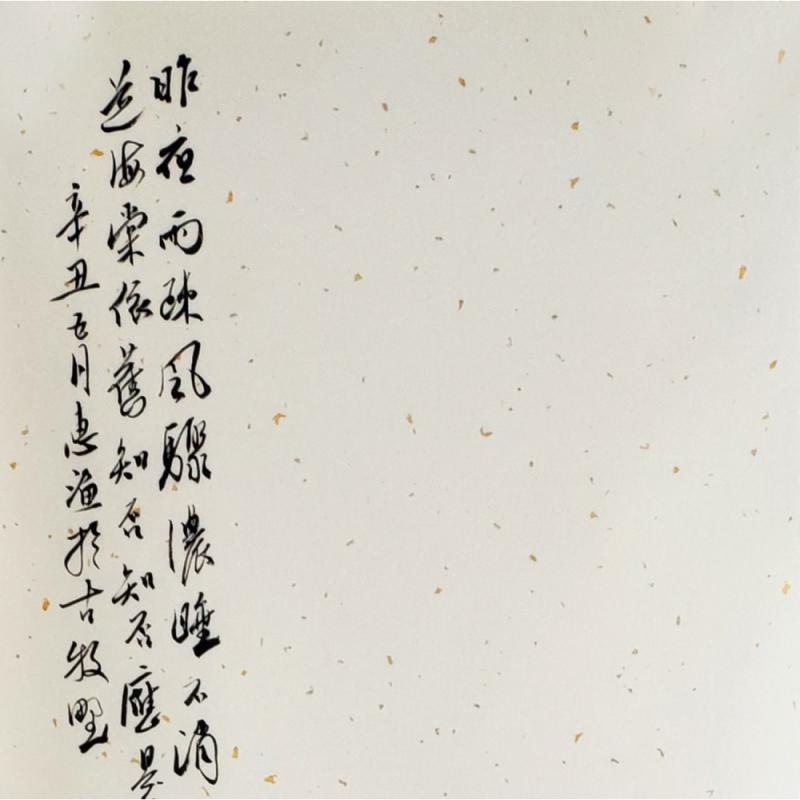 昨夜雨疎風驟濃睡不消
道海棠依舊知否知否應是
辛丑五月惠漁於古牧野